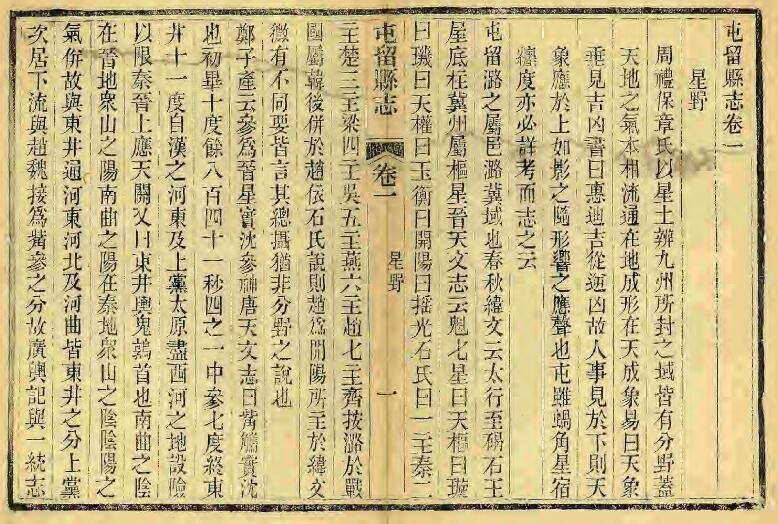 屯留縣志卷一
星野
周禮保章氏以星土辨九州所封之域皆有分野蓋
天地之氣本相流通在地成形在天成象易曰天象
垂見吉凶書曰惠迪吉從逆凶故人事見於下則天
象應於上如影之隨形響之應聲也屯雖蝸角星宿
纏度亦必詳考而志之云
屯留潞之屬邑潞冀域也春秋緯文云太行至碣石王
屋底柱冀州屬樞星晉天文志云魁七星曰天樞曰璇
曰璣曰天權曰玉衡曰開陽曰摇光石氏曰一主秦二
屯留縣志
卷一
星野
一
主楚三主梁四主吳五主燕六主趙七主齊按潞於戰
國屬韓後併於趙依石氏說則趙為開陽所主於緯文
微有不同要皆言其總攝猶非分野之說也
鄭子產云參為晉星實沈參神唐天文志曰觜觿實沈
也初畢十度餘八百四十一秒四之一中參七度終東
井十一度自漢之河東及上黨太原盡西河之地設險
以限秦晉上應天闕又曰東井輿鬼鶉首也南曲之陰
在晉地衆山之陽南曲之陽在秦地衆山之陰陰陽之
氣併故與東井通河東河北及河曲皆東井之分上黨
次居下流與趙魏接為觜參之分故廣輿記與一統志